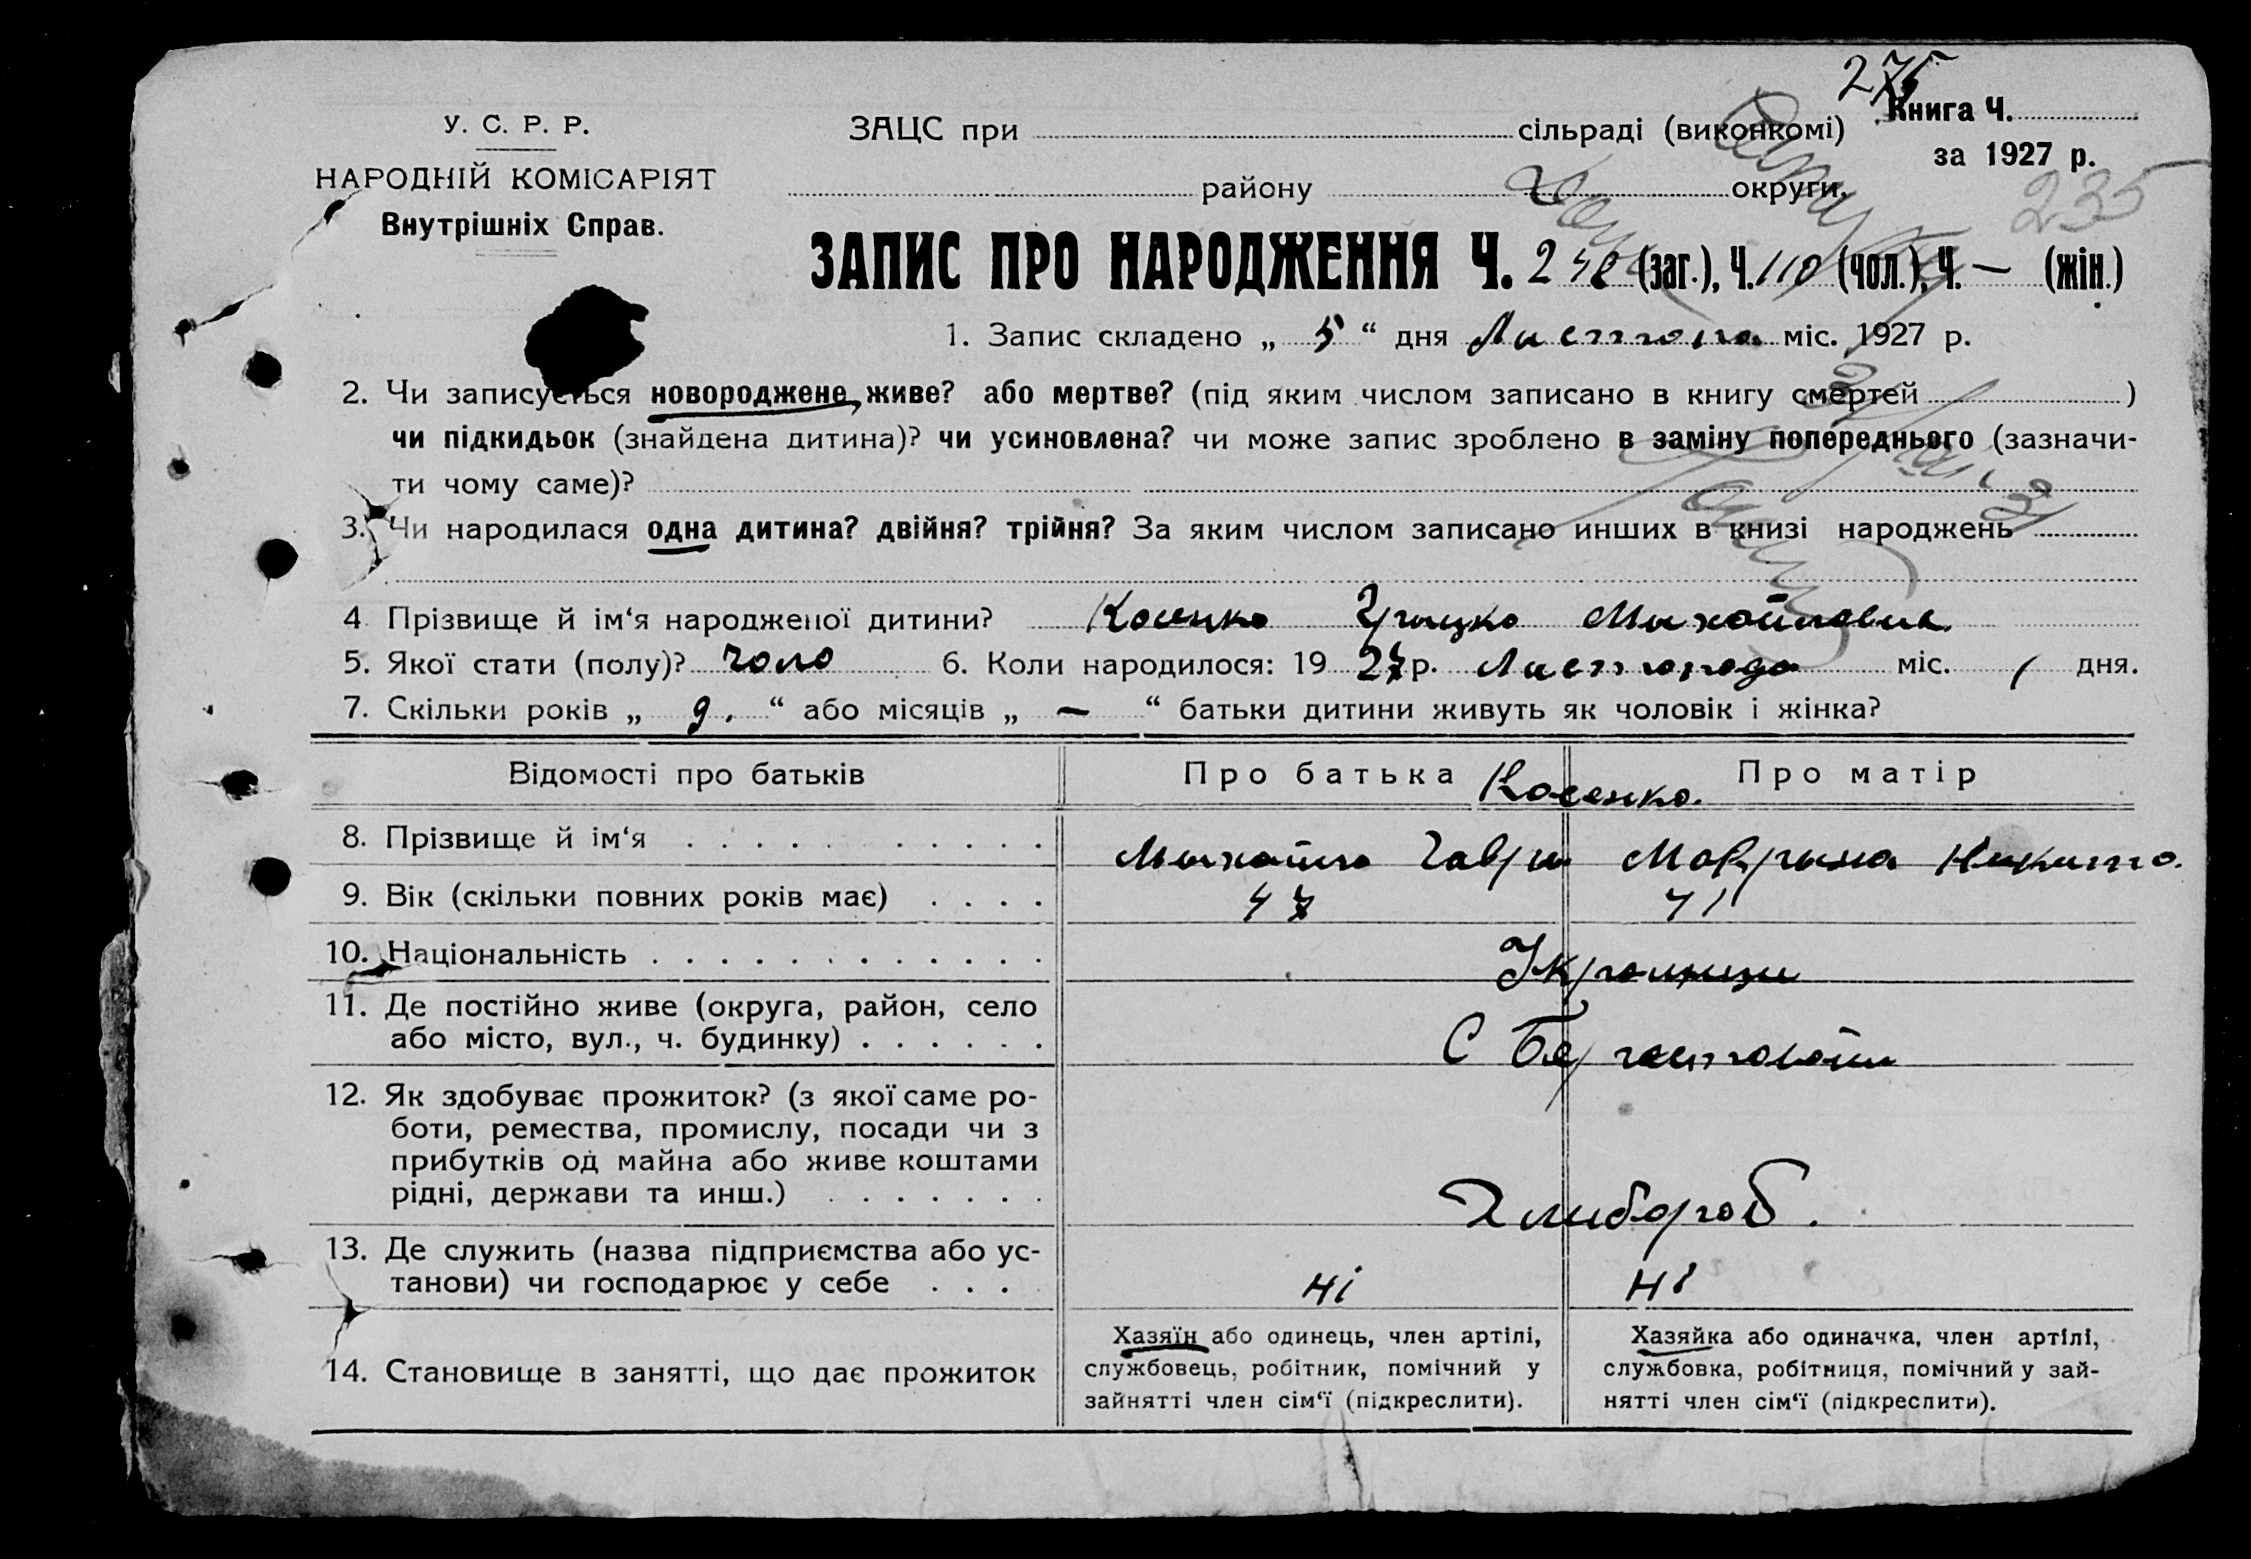 275
У. С. Р. Р.
ЗАЦС при сільраді (виконкомі)
Книга Ч.
за 1927 р.
НАРОДНІЙ КОМІСАРІЯТ
Внутрішніх Справ.
району округи.
235
ЗАПИС ПРО НАРОДЖЕННЯ Ч. (заг.), Ч. 110 (чол.), Ч. — (жін.)
1. Запис складено „ 5 “ дня міс. 1927 р.
2. Чи записується новороджене, живе? або мертве? (під яким числом записано в книгу смертей )
чи підкидьок (знайдена дитина)? чи усиновлена? чи може запис зроблено в заміну попереднього (зазначи-
ти чому саме)?
3. Чи народилася одна дитина? двійня? трійня? За яким числом записано инших в книзі народжень
4 Прізвище й ім‘я народженої дитини? Косенко Грыцко Мыхайлович
5. Якої стати (полу)? чоло 6. Коли народилося: 1927 р. Листопада міс. 1 дня.
7. Скільки років „ 9. “ або місяців „ — “ батьки дитини живуть як чоловік і жінка?
Відомості про батьків
Про батька Про матір
Косенко.
8. Прізвище й ім‘я Мыхайло Гаври Моврына Никито.
9. Вік (скільки повних років має) 47 41
10. Національність Украинци
11. Де постійно живе (округа, район, село
або місто, вул., ч. будинку) С
12. Як здобуває прожиток? (з якої саме ро-
боти, ремества, промислу, посади чи з
прибутків од майна або живе коштами
рідні, держави та инш.) Хлибороб.
13. Де служить (назва підприємства або ус-
танови) чи господарює у себе ні ні
14. Становище в занятті, що дає прожиток
Хазяїн або одинець, член артілі,
службовець, робітник, помічний у
зайнятті член сім‘ї (підкреслити).
Хазяйка або одиначка, член артілі,
службовка, робітниця, помічний у зай-
нятті член сім‘ї (підкреслити).